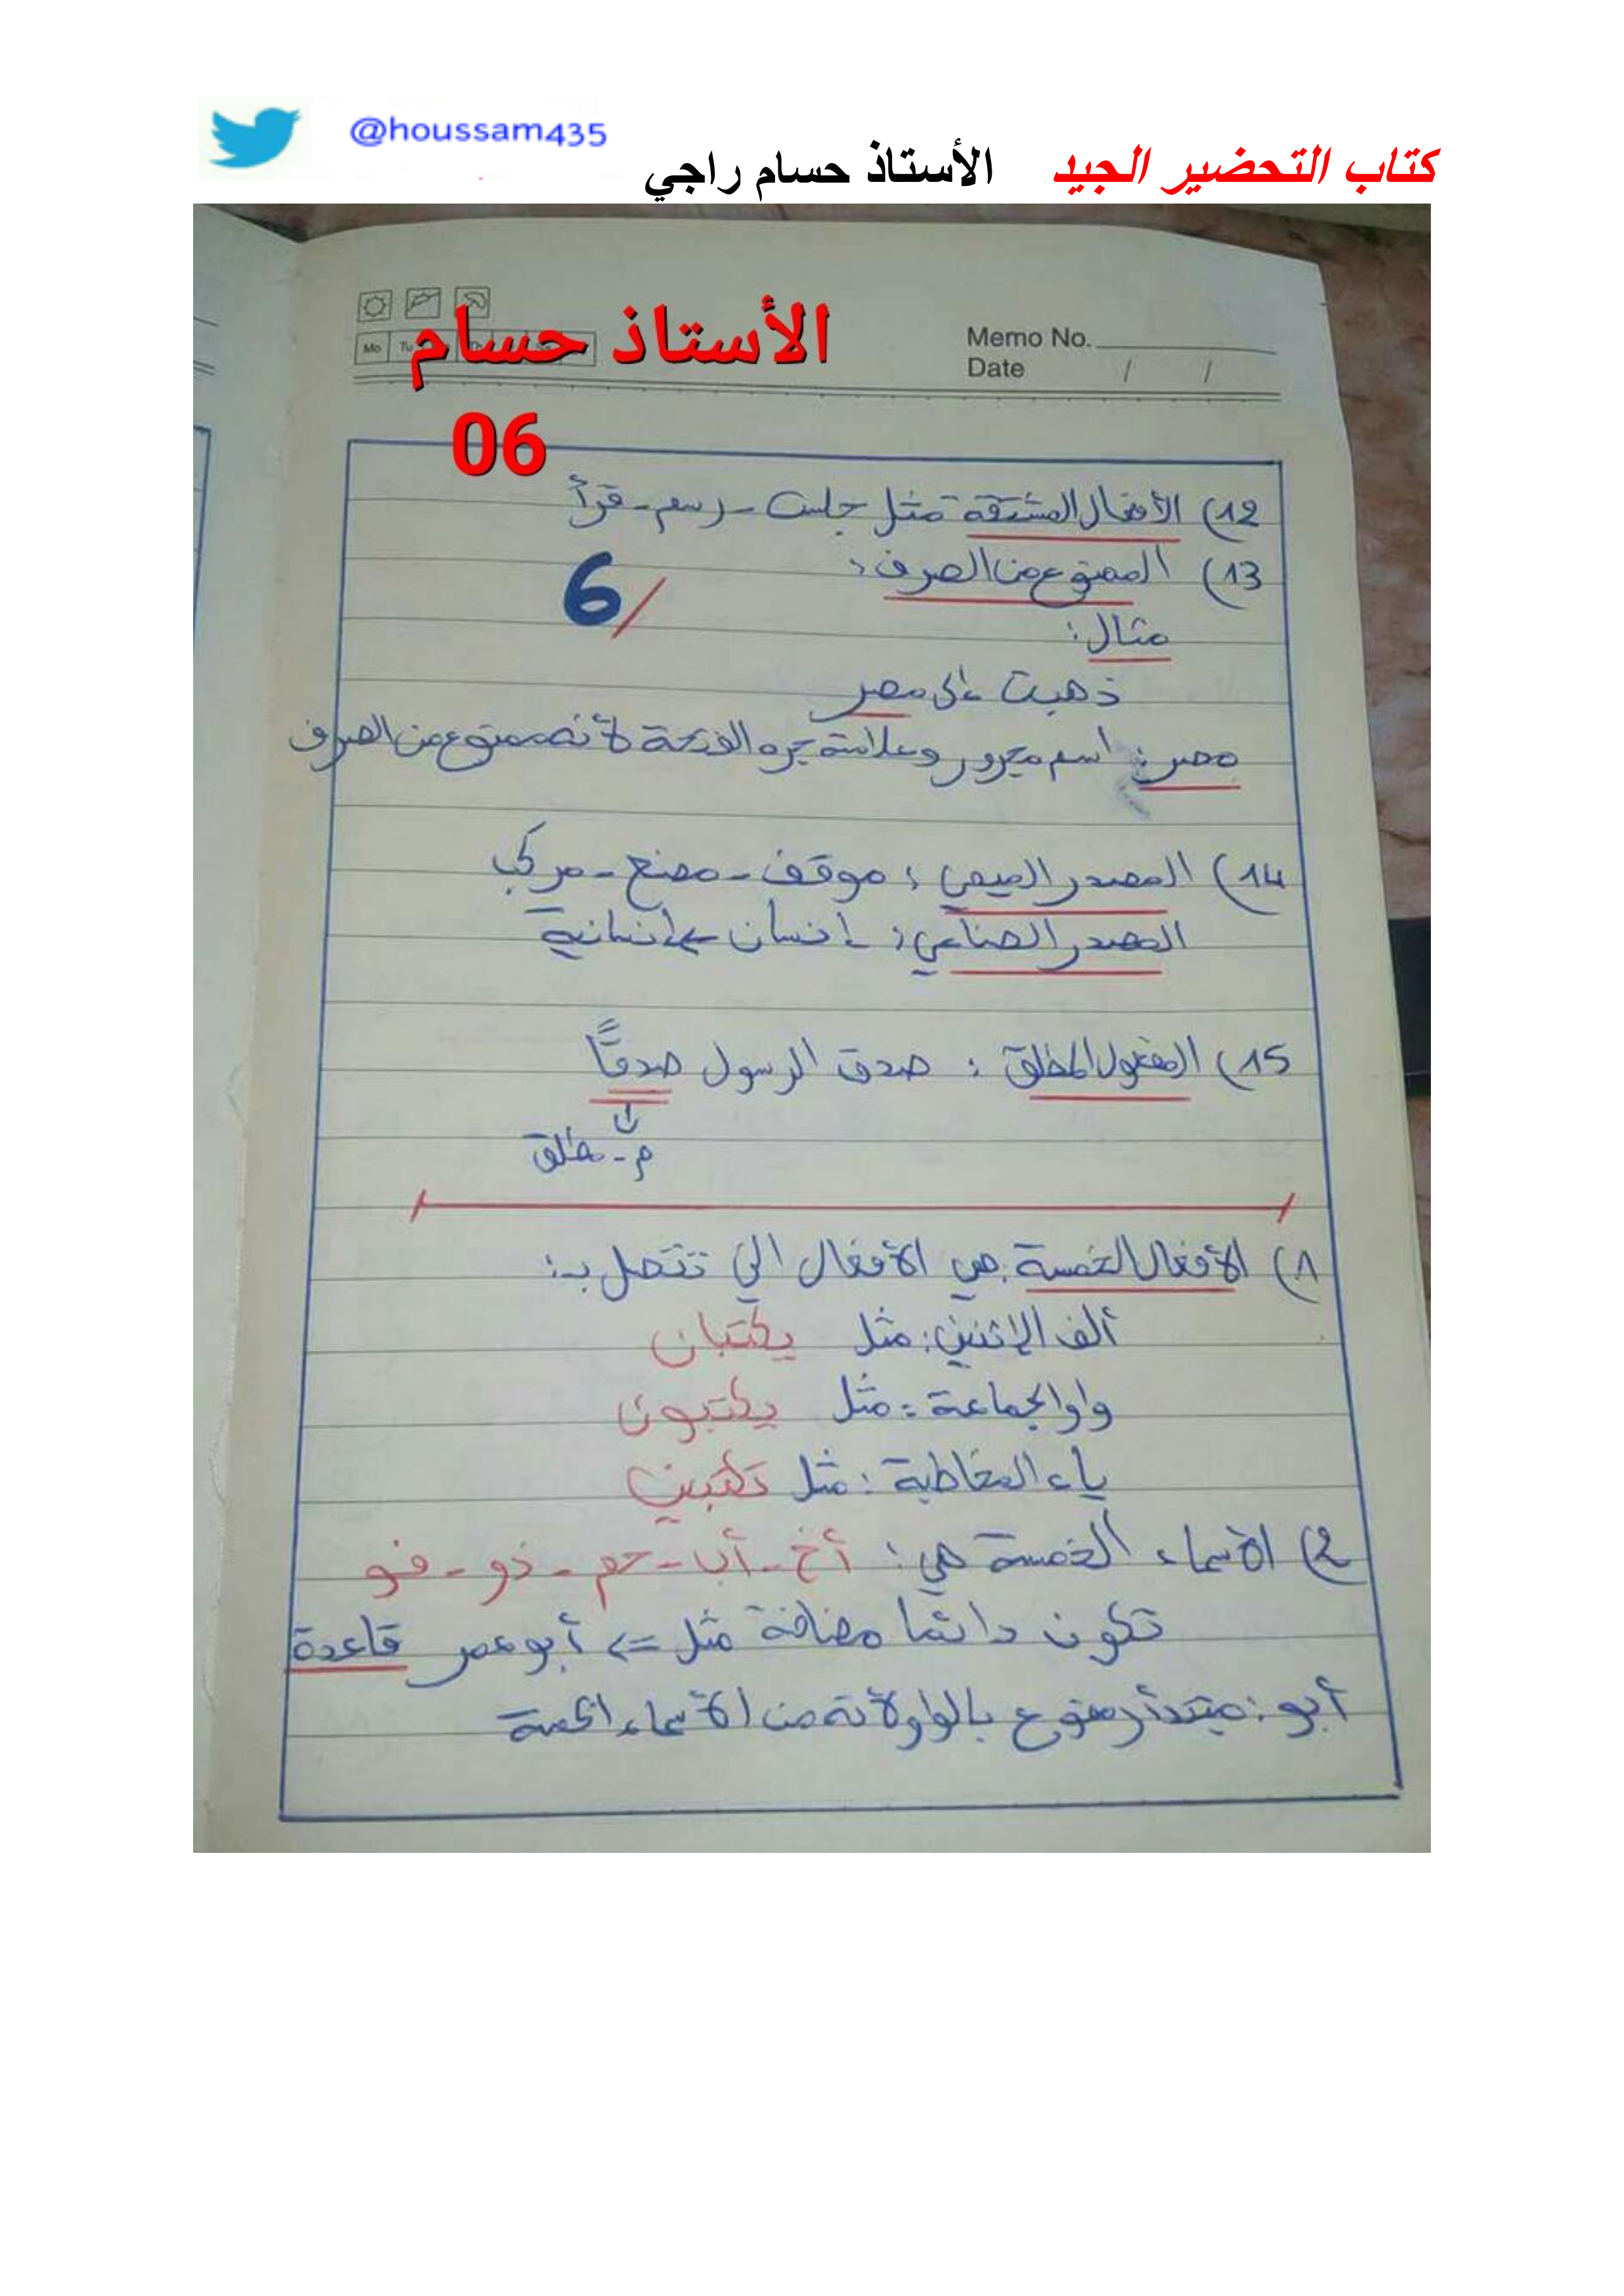 @houssam435
كتاب التحضير الجيد الأستاذ حسام راجي
الأستاذ حسام
06
Memo No.
Date / /
Mo Tu
12) الأفعال المشتقة مثل جلس - رسم - قرأ
13) الممنوع من الصرف:
6/
مثال:
ذهبت إلى مصر
مصر: اسم مجرور وعلامة جره الفتحة لأنه ممنوع من الصرف
14) المصدر الميمي: موقف - مصنع - مركب
المصدر الصناعي: إنسان ← إنسانية
15) المفعول المطلق: صدق الرسول صدقًا
م. مطلق
1) الأفعال الخمسة: هي الأفعال التي تتصل بـ:
ألف الإثنين: مثل يكتبان
واو الجماعة: مثل يكتبون
ياء المخاطبة: مثل تكتبين
2) الأسماء الخمسة هي: أخ - أب - حم - ذو - فو
تكون دائما مضافة مثل => أبو عمر قاعدة
أبو: مبتدأ مرفوع بالواو لأنه من الأسماء الخمسة